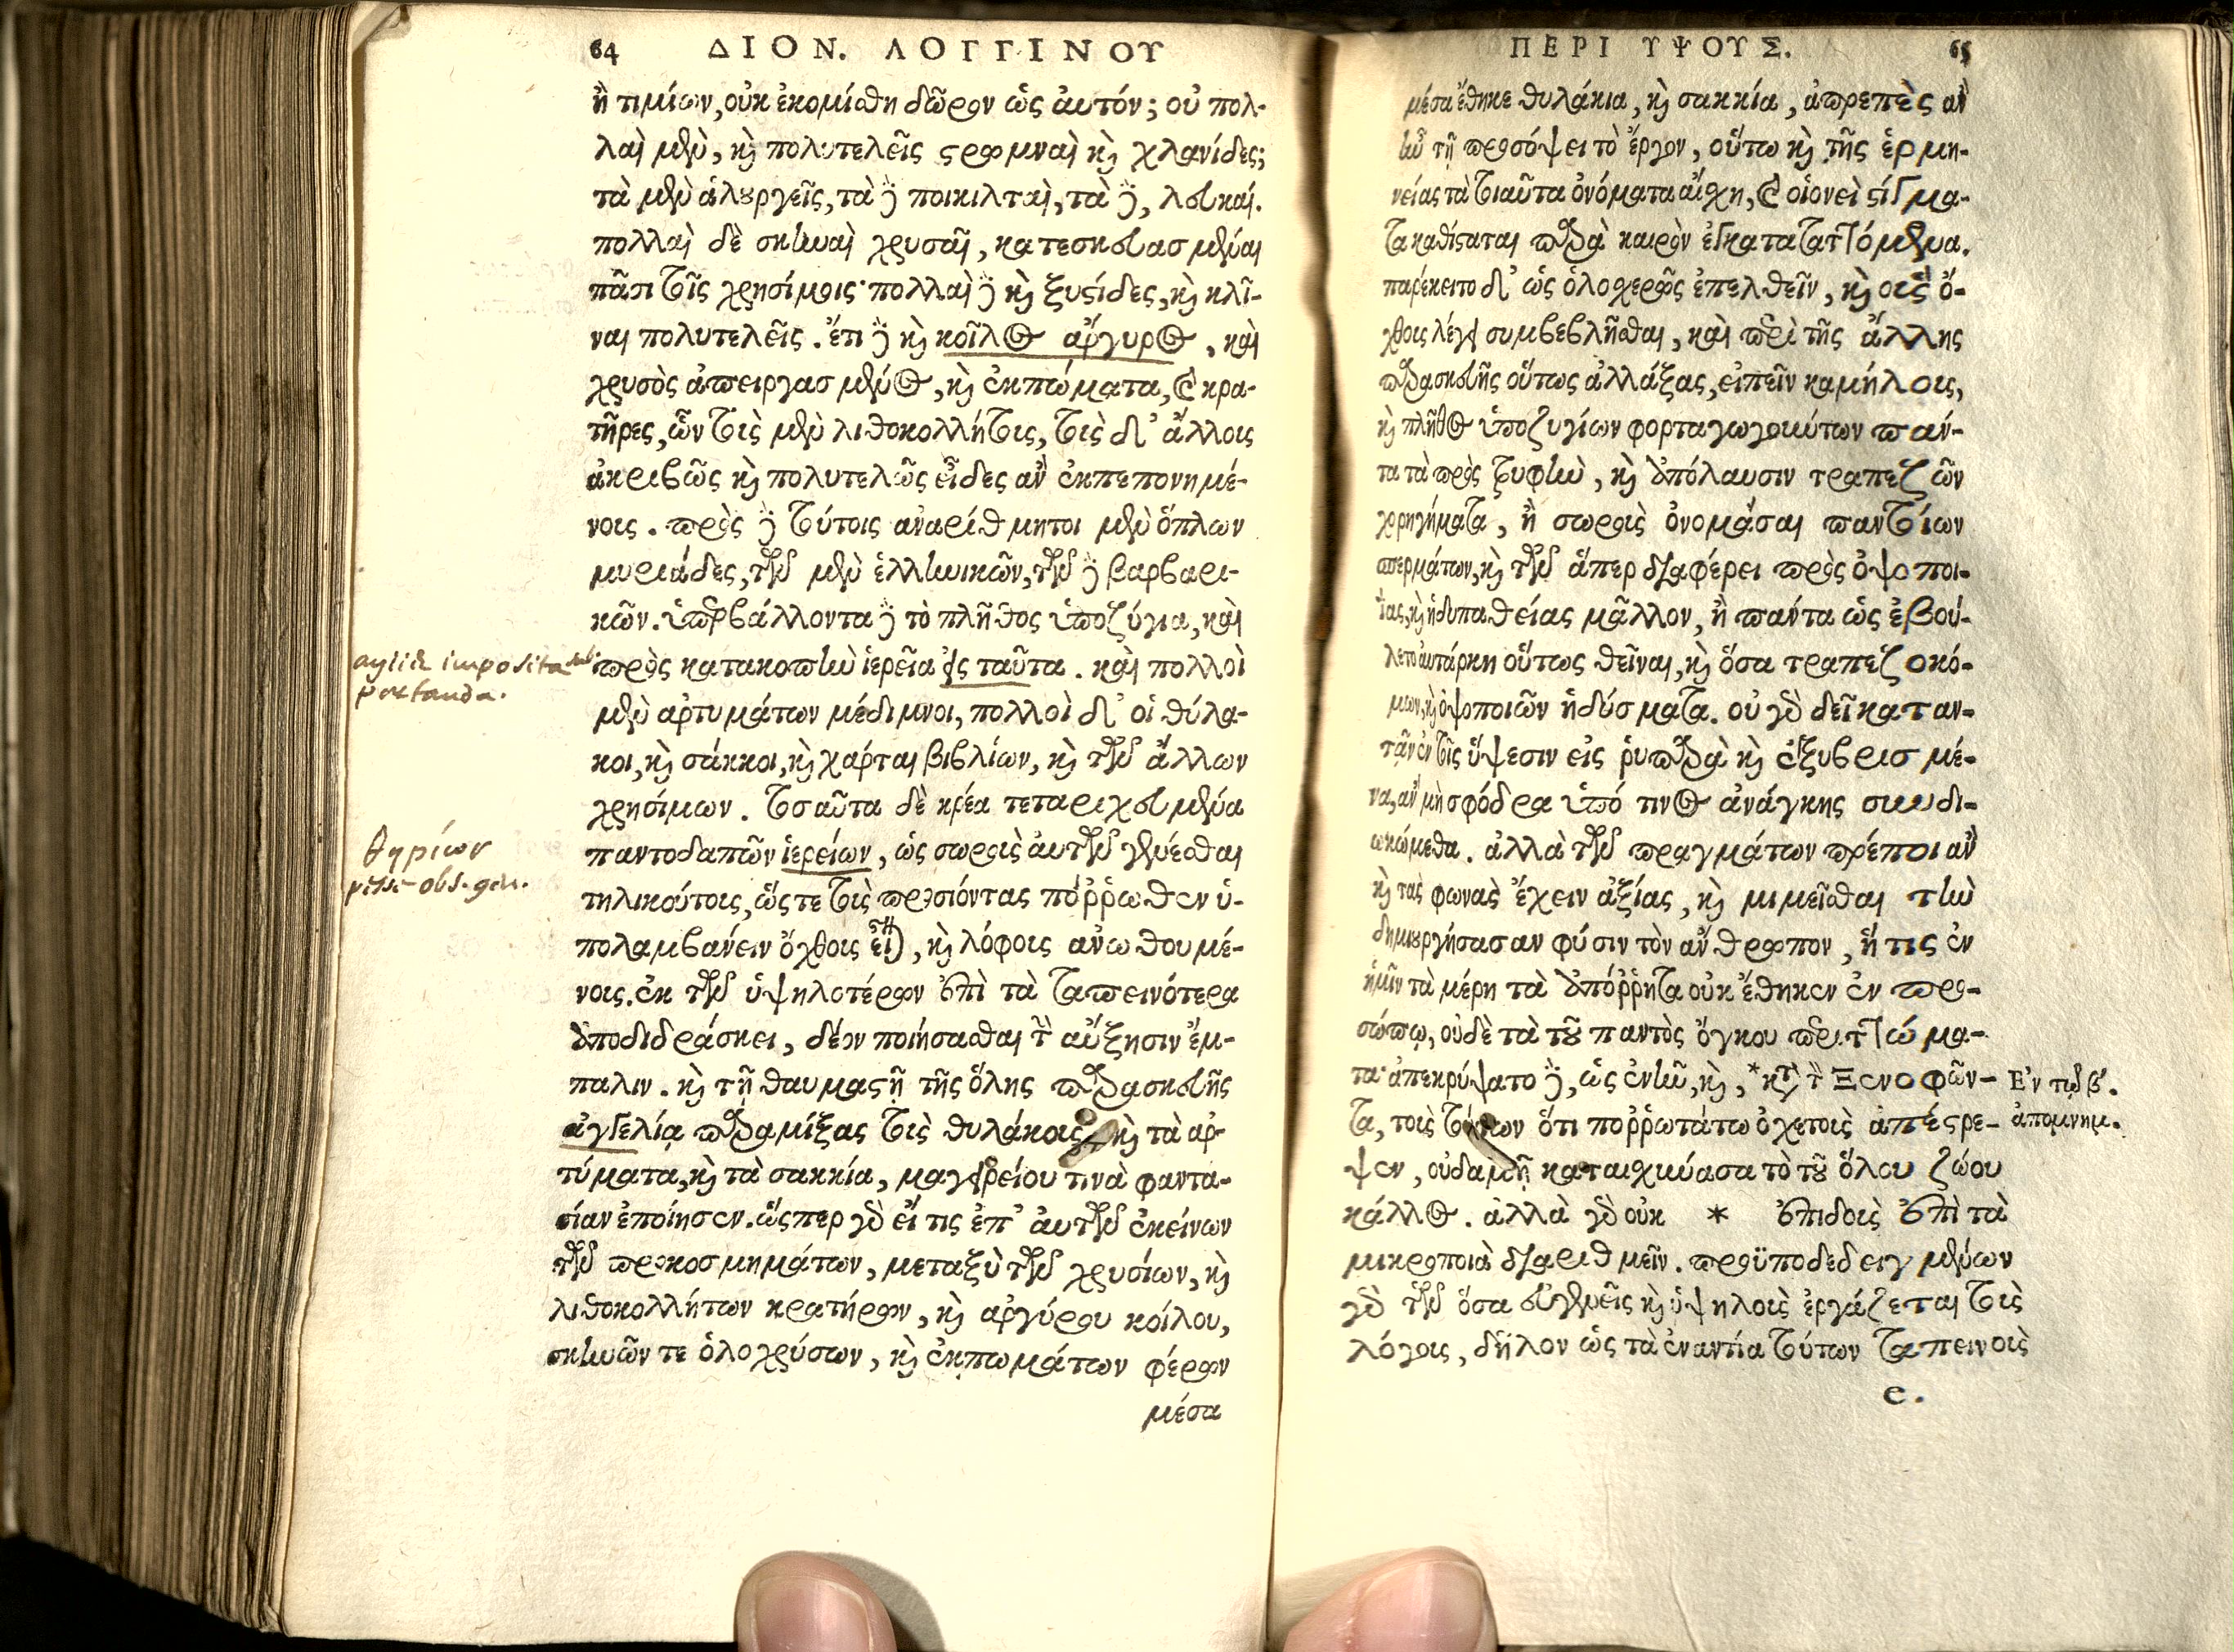 64 ΔΙΟΝ. ΛΟΓΓΙΝΟΥ
ἢ τιμίων, οὐκ ἐκομίσθη δῶρον ὡς ἀυτόν; οὐ πολ-
λαὶ μὲν, καὶ πολυτελεῖς στρωμναὶ καὶ χλανίδες;
τὰ μὲν ἁλουργεῖς, τὰ δὲ ποικιλταὶ, τὰ δὲ, λευκαί.
πολλαὶ δὲ σκηναὶ χρυσαῖ, κατεσκευασμέναι
πᾶσι τοῖς χρησίμοις· πολλαὶ δὲ καὶ ξυστίδες, καὶ κλῖ-
ναι πολυτελεῖς. ἔτι δὲ καὶ κοῖλος ἄργυρος, καὶ
χρυσὸς ἀπειργασμένος, καὶ ἐκπώματα, καὶ κρα-
τῆρες, ὧν τοὺς μὲν λιθοκολλήτους, τοὺς δ' ἄλλους
ἀκριβῶς καὶ πολυτελῶς εἶδες ἂν ἐκπεπονημέ-
νους. πρὸς δὲ τούτοις ἀναρίθμητοι μὲν ὅπλων
μυριάδες, τῶν μὲν ἑλληνικῶν, τῶν δὲ βαρβαρι-
κῶν. ὑπερβάλλοντα δὲ τὸ πλῆθος ὑποζύγια, καὶ
πρὸς κατακοπὴν ἱερεῖα εἰς ταῦτα. καὶ πολλοὶ
μὲν ἀρτυμάτων μέδιμνοι, πολλοὶ δ' οἱ θύλα-
κοι, καὶ σάκκοι, καὶ χάρται βιβλίων, καὶ τῶν ἄλλων
χρησίμων. τοσαῦτα δὲ κρέα τεταριχευμένα
παντοδαπῶν ἱερείων, ὡς σωροὺς ἀυτῶν γενέσθαι
τηλικούτους, ὥστε τοὺς προσιόντας πόῤῥωθεν ὑ-
πολαμβάνειν ὄχθους εἶναι, καὶ λόφους ἀνωθουμέ-
νους. ἐκ τῶν ὑψηλοτέρων ἐπὶ τὰ ταπεινότερα
ἀποδιδράσκει, δέον ποιήσασθαι τὴν αὔξησιν ἔμ-
παλιν. καὶ τῇ θαυμαστῇ τῆς ὅλης παρασκευῆς
ἀγγελίᾳ παραμίξας τοὺς θυλάκους, καὶ τὰ ἀρ-
τύματα, καὶ τὰ σακκία, μαγειρείου τινὰ φαντα-
σίαν ἐποίησεν. ὥσπερ γὰρ εἴ τις ἐπ' ἀυτῶν ἐκείνων
τῶν προκοσμημάτων, μεταξὺ τῶν χρυσίων, καὶ
λιθοκολλήτων κρατήρων, καὶ ἀργύρου κοίλου,
σκηνῶν τε ὁλοχρύσων, καὶ ἐκπωμάτων φέρων
μέσα
imposita
θηρίων
ΠΕΡΙ ΥΨΟΥΣ. 65
μέσα ἔθηκε θυλάκια, καὶ σακκία, ἀπρεπὲς ἂν
ἦν τῇ προσόψει τὸ ἔργον, οὕτω καὶ τῆς ἑρμη-
νείας τὰ τοιαῦτα ὀνόματα αἴσχη, καὶ οἱονεὶ στίγμα-
τα καθίσταται παρὰ καιρὸν ἐγκαταταττόμενα.
παρέκειτο δ' ὡς ὁλοχερῶς ἐπελθεῖν, καὶ οὓς ὄ-
χθους λέγει συμβεβλῆσθαι, καὶ περὶ τῆς ἄλλης
παρασκευῆς οὕτως ἀλλάξας, εἰπεῖν καμήλους,
καὶ πλῆθος ὑποζυγίων φορταγωγούντων πάν-
τα τὰ πρὸς τρυφὴν, καὶ ἀπόλαυσιν τραπεζῶν
χορηγήματα, ἢ σωροὺς ὀνομάσαι παντοίων
σπερμάτων, καὶ τῶν ἅπερ διαφέρει πρὸς ὀψοποι-
ΐας, καὶ ἡδυπαθείας μᾶλλον, ἢ πάντα ὡς ἐβού-
λετο ἀυτάρκη οὕτως θεῖναι, καὶ ὅσα τραπεζοκό-
μων, καὶ ὀψοποιῶν ἡδύσματα. οὐ γὰρ δεῖ καταν-
τᾷν ἐν τοῖς ὕψεσιν εἰς ῥυπαρὰ καὶ ἐξυβρισμέ-
να, ἂν μὴ σφόδρα ὑπό τινος ἀνάγκης συνδι-
ωκώμεθα. ἀλλὰ τῶν πραγμάτων πρέποι ἂν
καὶ τὰς φωνὰς ἔχειν ἀξίας, καὶ μιμεῖσθαι τὴν
δημιουργήσασαν φύσιν τὸν ἄνθρωπον, ἥτις ἐν
ἡμῖν τὰ μέρη τὰ ἀπόῤῥητα οὐκ ἔθηκεν ἐν προ-
σώπῳ, οὐδὲ τὰ τοῦ παντὸς ὄγκου περιττώμα-
τα· ἀπεκρύψατο δὲ, ὡς ἐνῆν, καὶ, *κατὰ τὸν Ξενοφῶν-
τα, τοὺς τούτων ὅτι ποῤῥωτάτω ὀχετοὺς ἀπέστρε-
ψεν, οὐδαμῇ καταισχύνασα τὸ τοῦ ὅλου ζώου
κάλλος. ἀλλὰ γὰρ οὐκ * ἐπιδοὺς ἐπὶ τὰ
μικροποιὰ διαριθμεῖν. προϋποδεδειγμένων
γὰρ τῶν ὅσα εὐγενεῖς καὶ ὑψηλοὺς ἐργάζεται τοὺς
λόγους, δῆλον ὡς τὰ ἐναντία τούτων ταπεινοὺς
e.
Ἐν τῷ β΄.
ἀπομνημ.